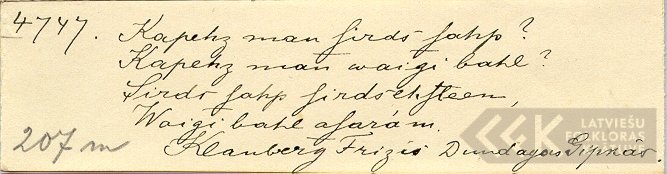 4747. Kapehz man sirds sahp?
Kapehz man waigi bahl?
Sirds sahp sirdsehsteem,
Waigi bahl asarám.
207 m
Klauberg Frizis Dundagas Gipkás.
LATVIEŠU
FOLKLORAS
KRĀTUVE